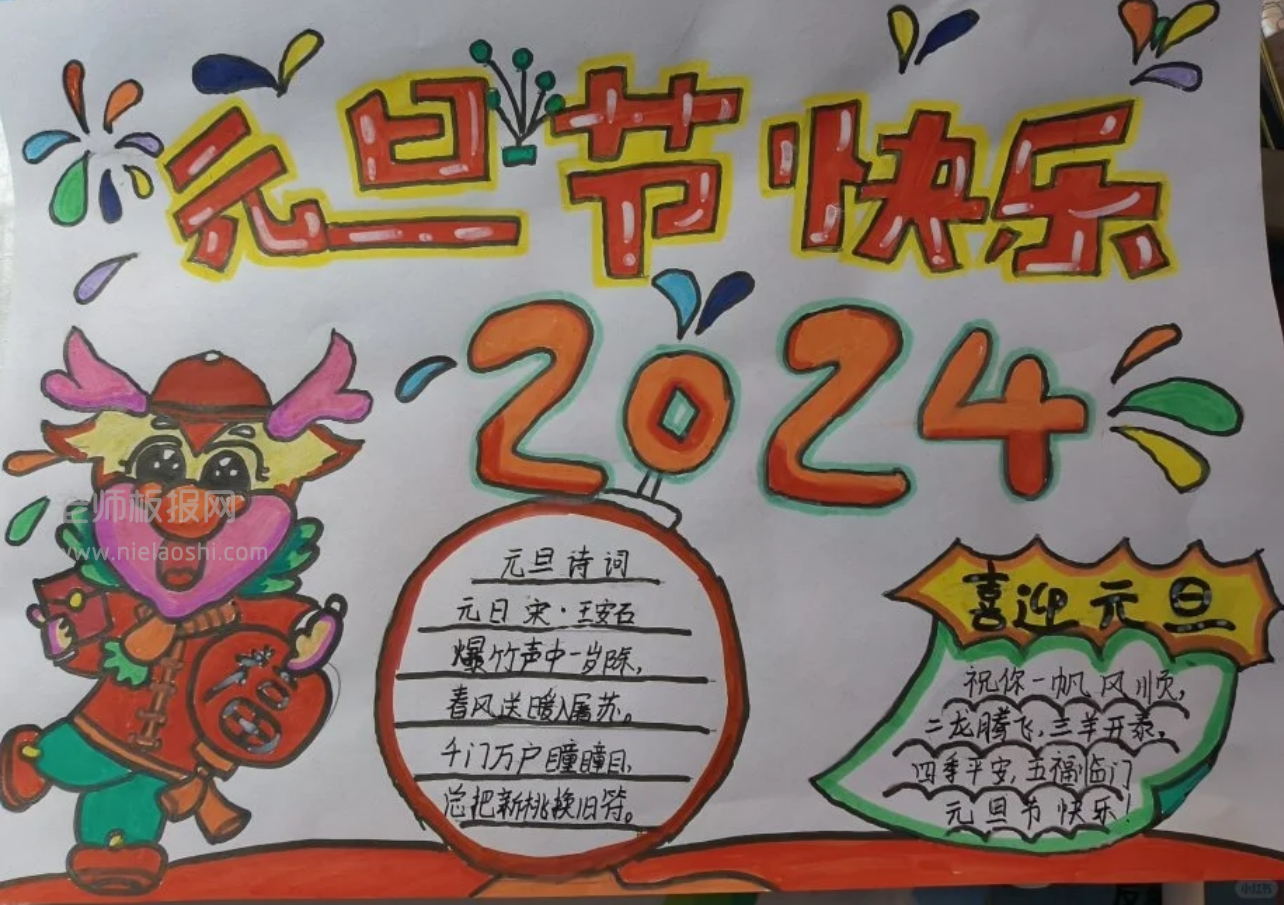 元旦节快乐
2024
老师板报网
www.nielaoshi.com
元旦诗词
元日 宋·王安石
爆竹声中一岁除,
春风送暖入屠苏。
千门万户瞳瞳日,
总把新桃换旧符。
喜迎元旦
祝你一帆风顺,
二龙腾飞,三羊开泰,
四季平安,五福临门
元旦节快乐!
小红书